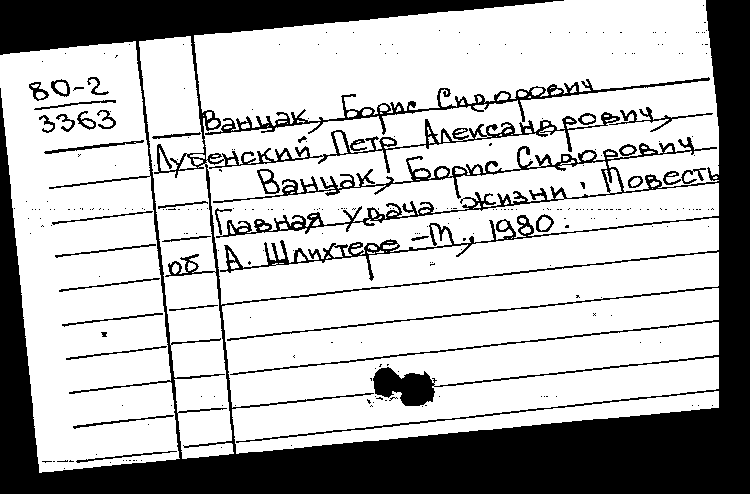 80-2
3363
Ванцак, Борис Сидорович
Лубенский, Петр Александрович,
Ванцак, Борис Сидорович
Главная удача жизни: Повесть
об А. Шлихтере.-М., 1980.